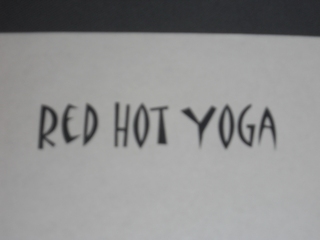 RED HOT YOGA